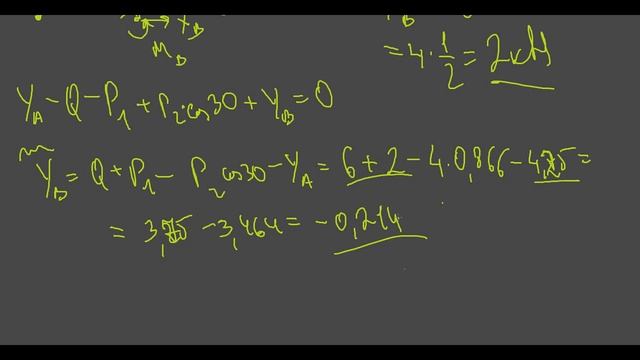 X_B
M_B
B
= 4 · 1/2 = 2 кН
Y_A - Q - P_1 + P_2 cos30 + Y_B = 0
Y_B = Q + P_1 - P_2 cos30 - Y_A = 6 + 2 - 4·0,866 - 4,25 =
= 3,25 - 3,464 = -0,214